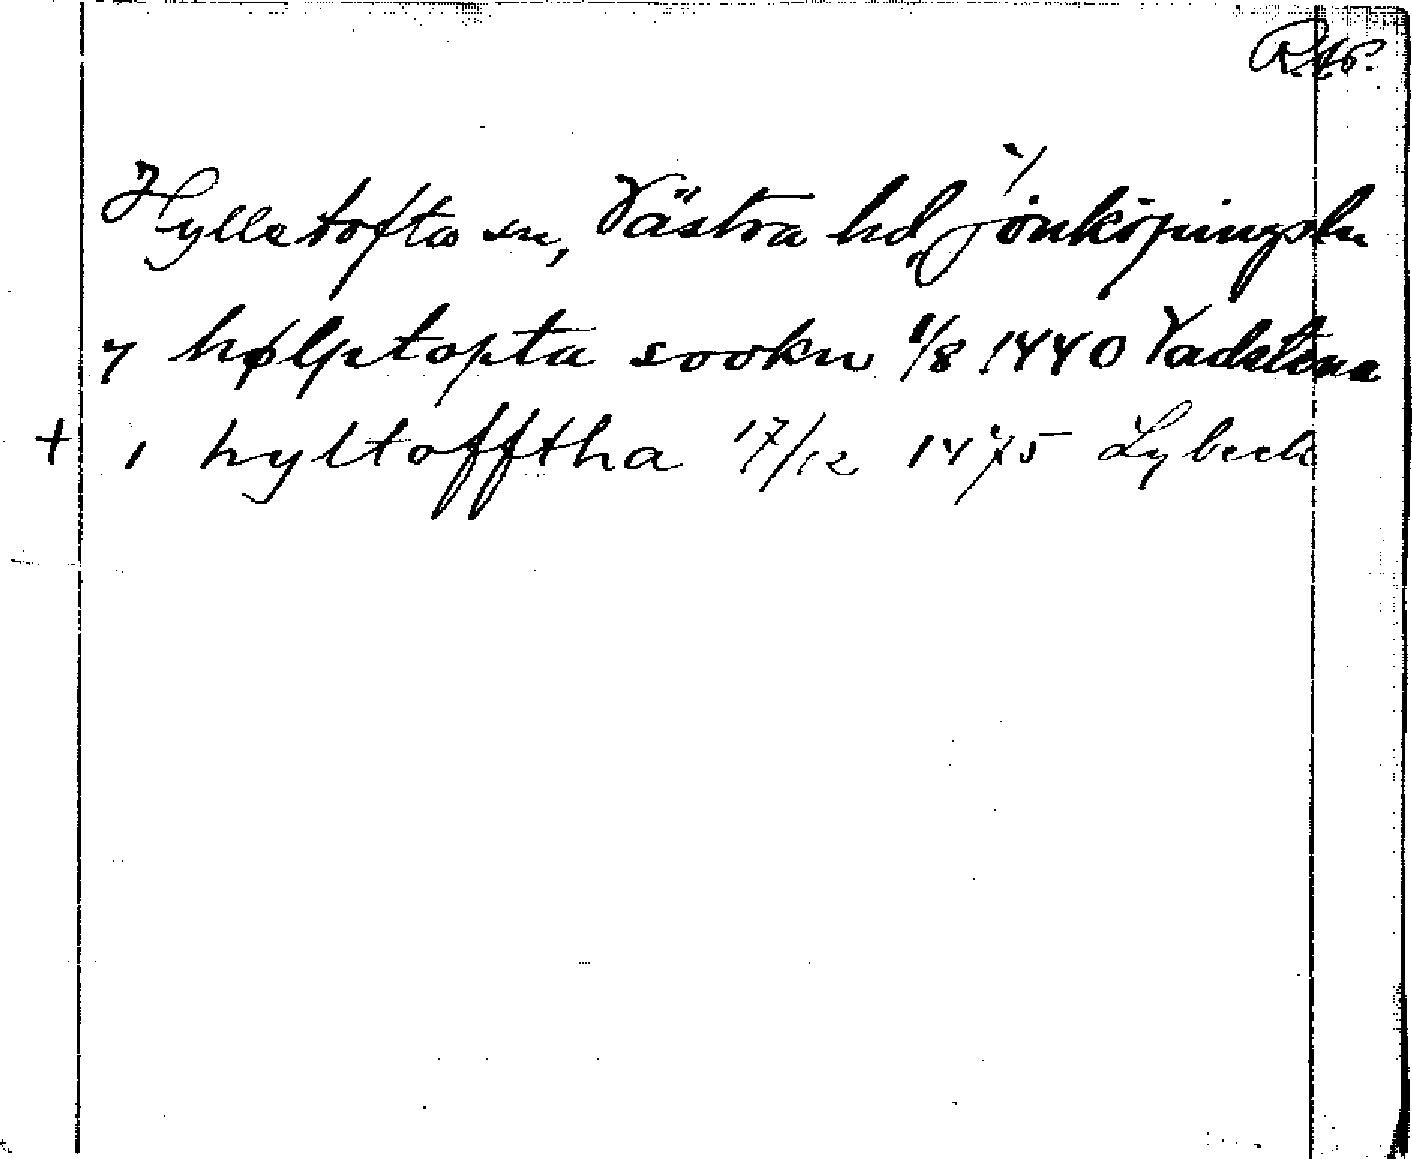 R.Ap.
Hylletofta sn, Västra hd, Jönköpings ln
y hølpetopta sookn 1/8 1440 Vadstena
+ i hyltofftha 17/12 1475 Lybeck